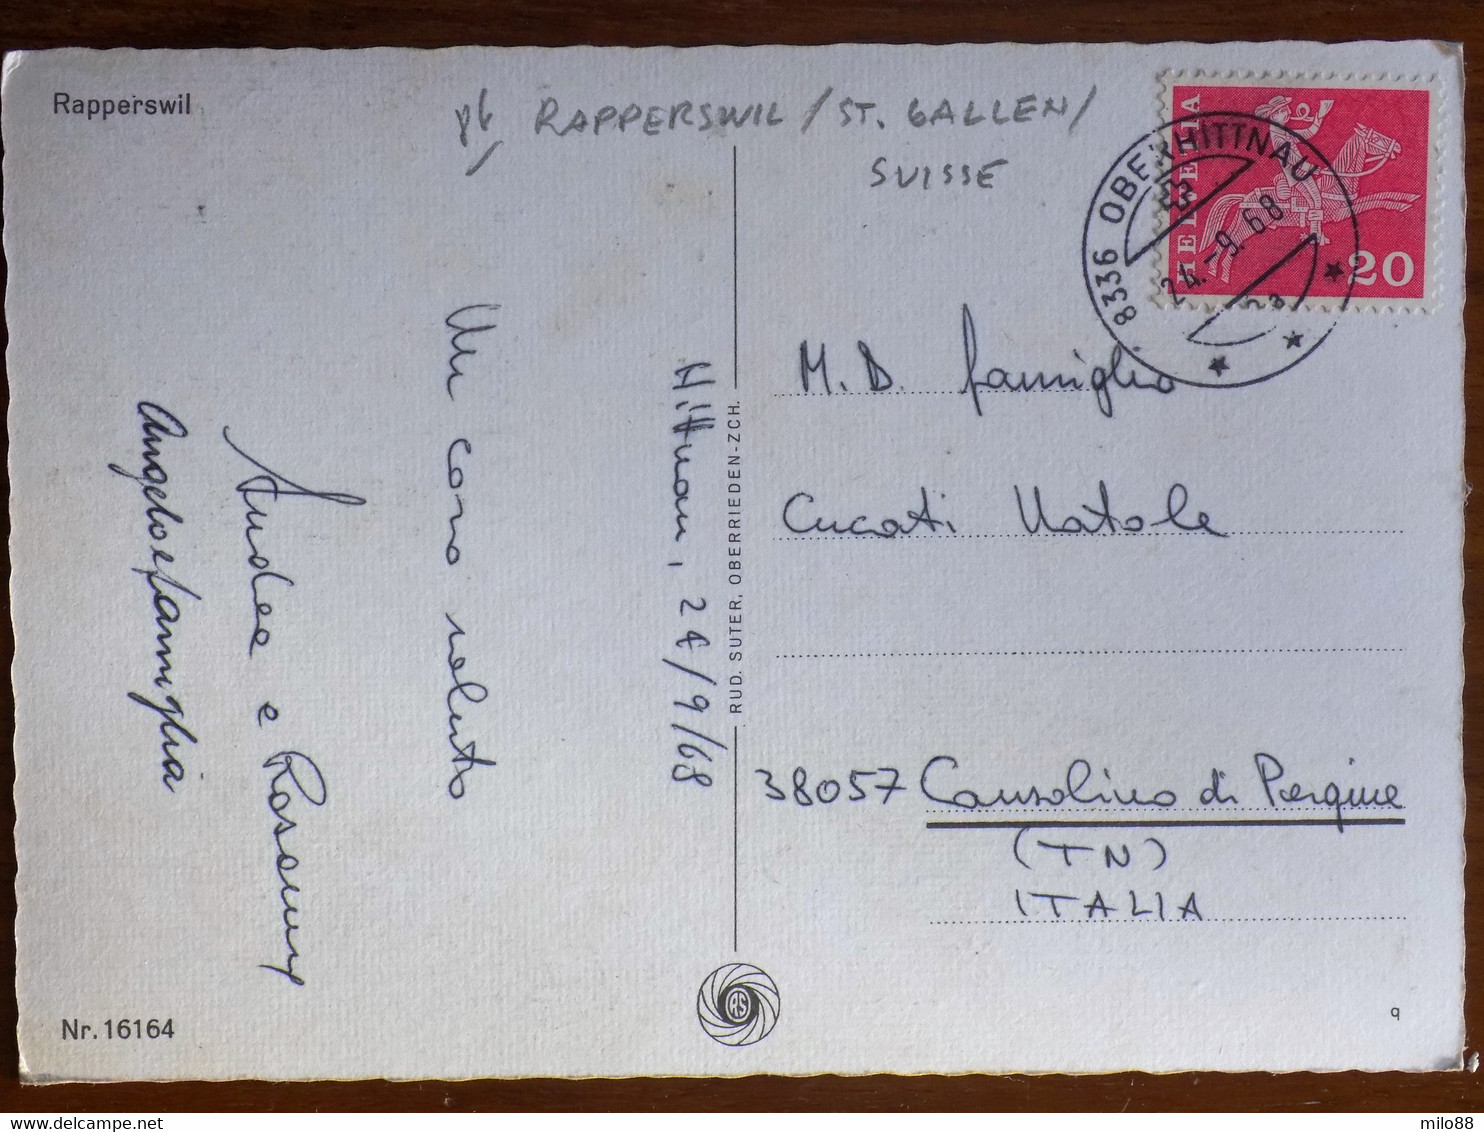 Rapperswil
RAPPERSWIL / ST. GALLEN /
SUISSE
HELVETIA
20
8336 OBERHITTNAU
24.-9.68
Hittnau, 24/9/68
Un caro saluto
e Rosemy
Angelo e famiglia
M.D. famiglia
Natale
38057 Canzolino di Pergine
(TN)
ITALIA
RUD. SUTER, OBERRIEDEN-ZCH.
RS
Nr. 16164
q
milo88